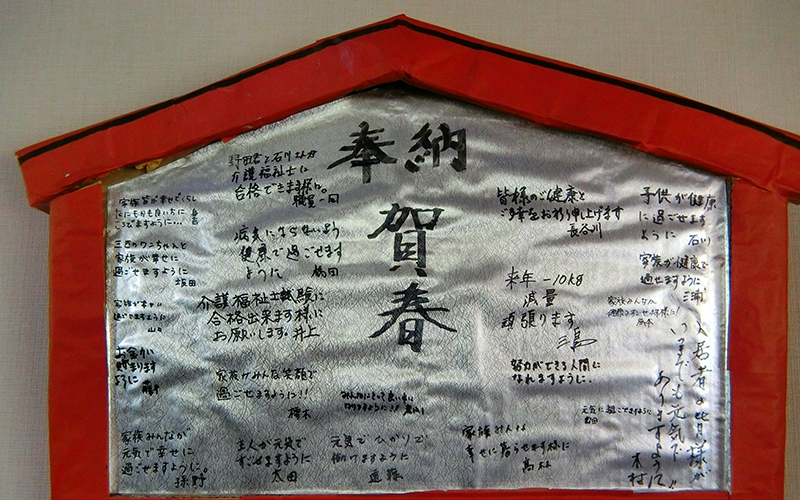 奉納
賀春
野田君と石川さんが
介護福祉士に
合格できます様に。
職員一同
病気にならないよう
健康で過ごせます
ように
介護福祉士試験に
合格出来ます様に
お願いします。井上
家族がみんな笑顔で
過ごせますように!!
家族みんなが
元気で幸せに
過ごせますように。
主人が元気で
すごせますように
太田
元気でひかりで
働けますように
遠藤
三匹のワンちゃんと
家族が幸せに
過ごせますように
坂田
お金が
貯まります
ように
皆様のご健康と
ご多幸をお祈り申し上げます
長谷川
来年 -10kg
減量
頑張ります
努力ができる人間に
なれますように。
家族みんな
幸せに暮らせます様に
子供が健康
に過ごせます
ように 石川
家族が健康で
過せますように
三浦
入居者の皆様が
いつまでも元気で
ありますように!!
木村
元気に過ごせますように